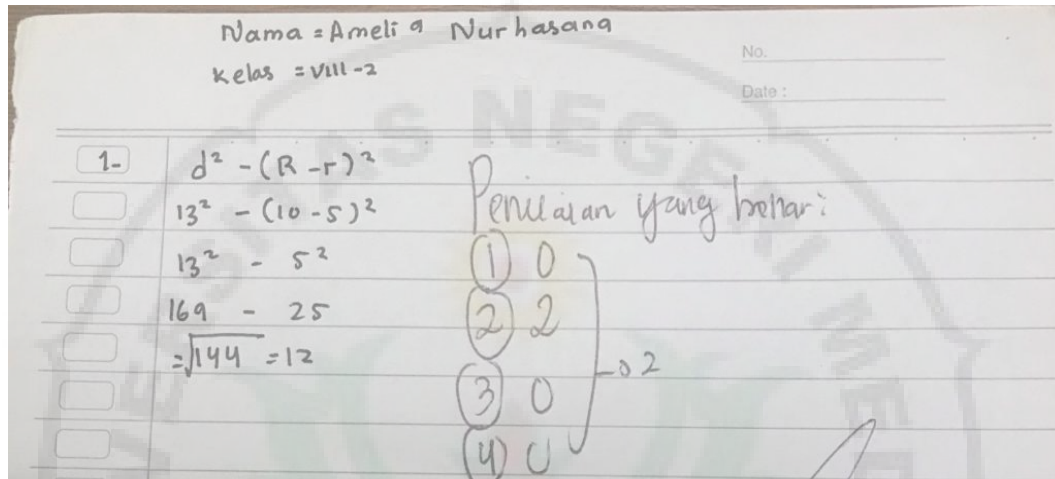 Nama = Amelia Nurhasana
Kelas = VIII-2
No.
Date :
1-
d² - (R - r)²
13² - (10 - 5)²
13² - 5²
169 - 25
= √144 = 12
Penilaian yang benar:
① 0
② 2
③ 0
④ 0
→ 2